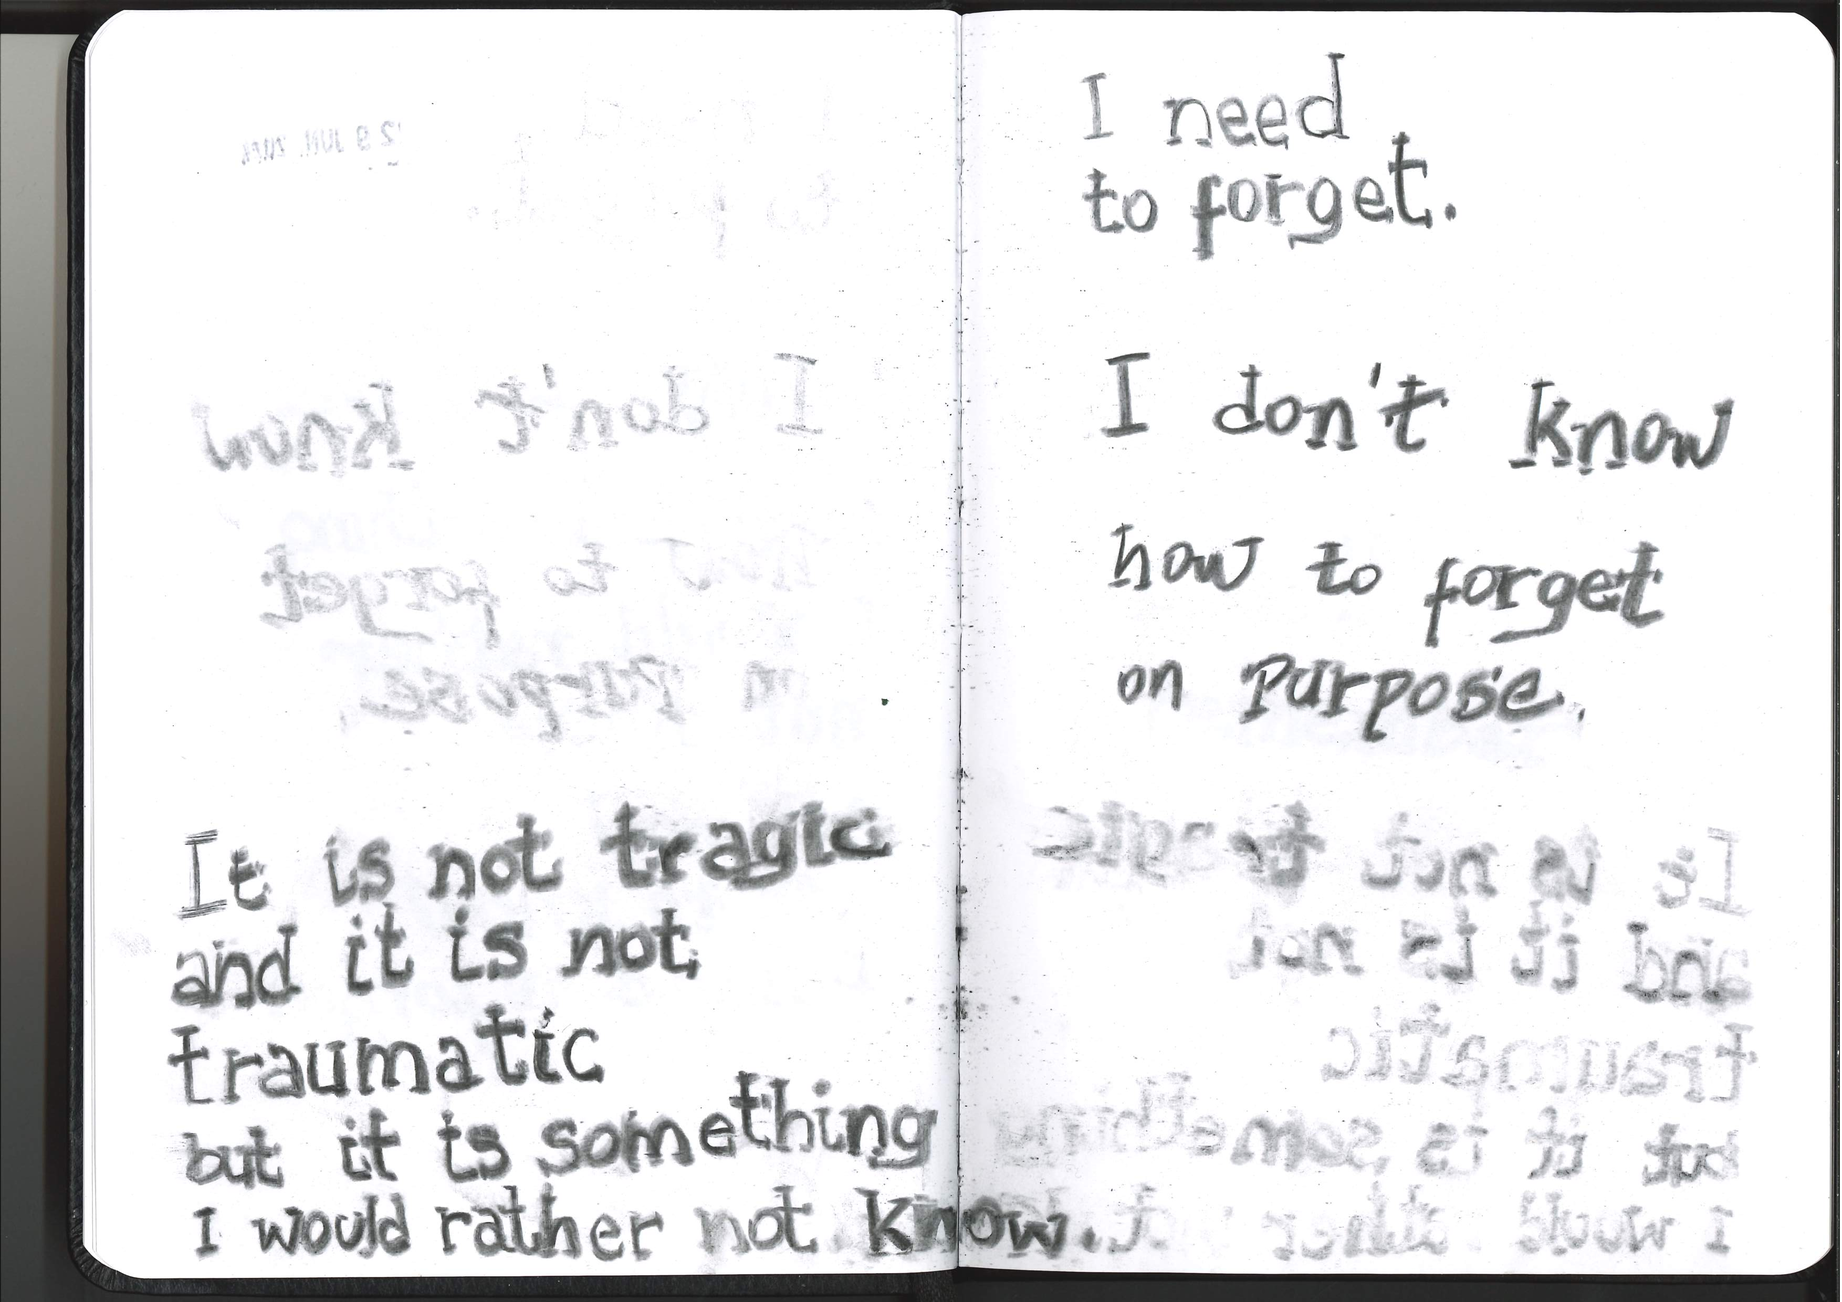 I need
to forget.
I don't know
how to forget
on purpose.
It is not tragic
and it is not
traumatic
but it is something
I would rather not know.